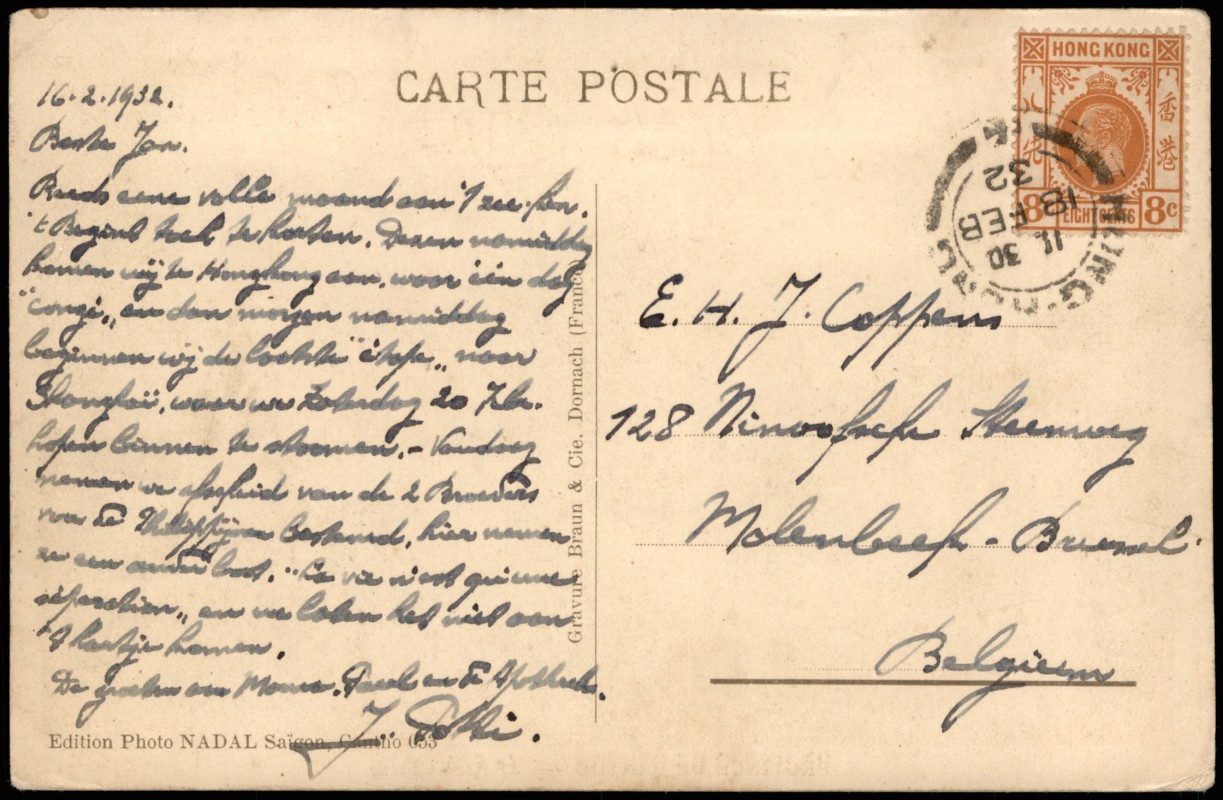 CARTE POSTALE
16.2.1932.
Beste Jan.
Reeds eene volle maand aan 't zee.
't Begint toch te korten. Dezen namiddag
komen wij te Hongkong aan, waar één dag
"congé", en dan morgen namiddag
beginnen wij de laatste "étape" naar
Shanghaï, waar we Zaterdag 20
hopen binnen te stoomen. - Vandaag
nemen we afscheid van de 2 Broeders
voor de Philippijnen bestemd, hier nemen
ze een ander boot. "La vie n'est qu'une
séparation", en we laten het niet aan
't hartje komen.
De groeten aan Moma. Paul en de Apotheek.
J.
Edition Photo NADAL Saïgon, Cantho 053
Gravure Braun & Cie. Dornach (France)
HONG KONG
香港
8c EIGHT CENTS 8c
HONG-KONG
11 30
18 FEB
32
E. H. J. Coppens
128 Ninoofsche Steenweg
Molenbeek - Brussel.
Belgïem